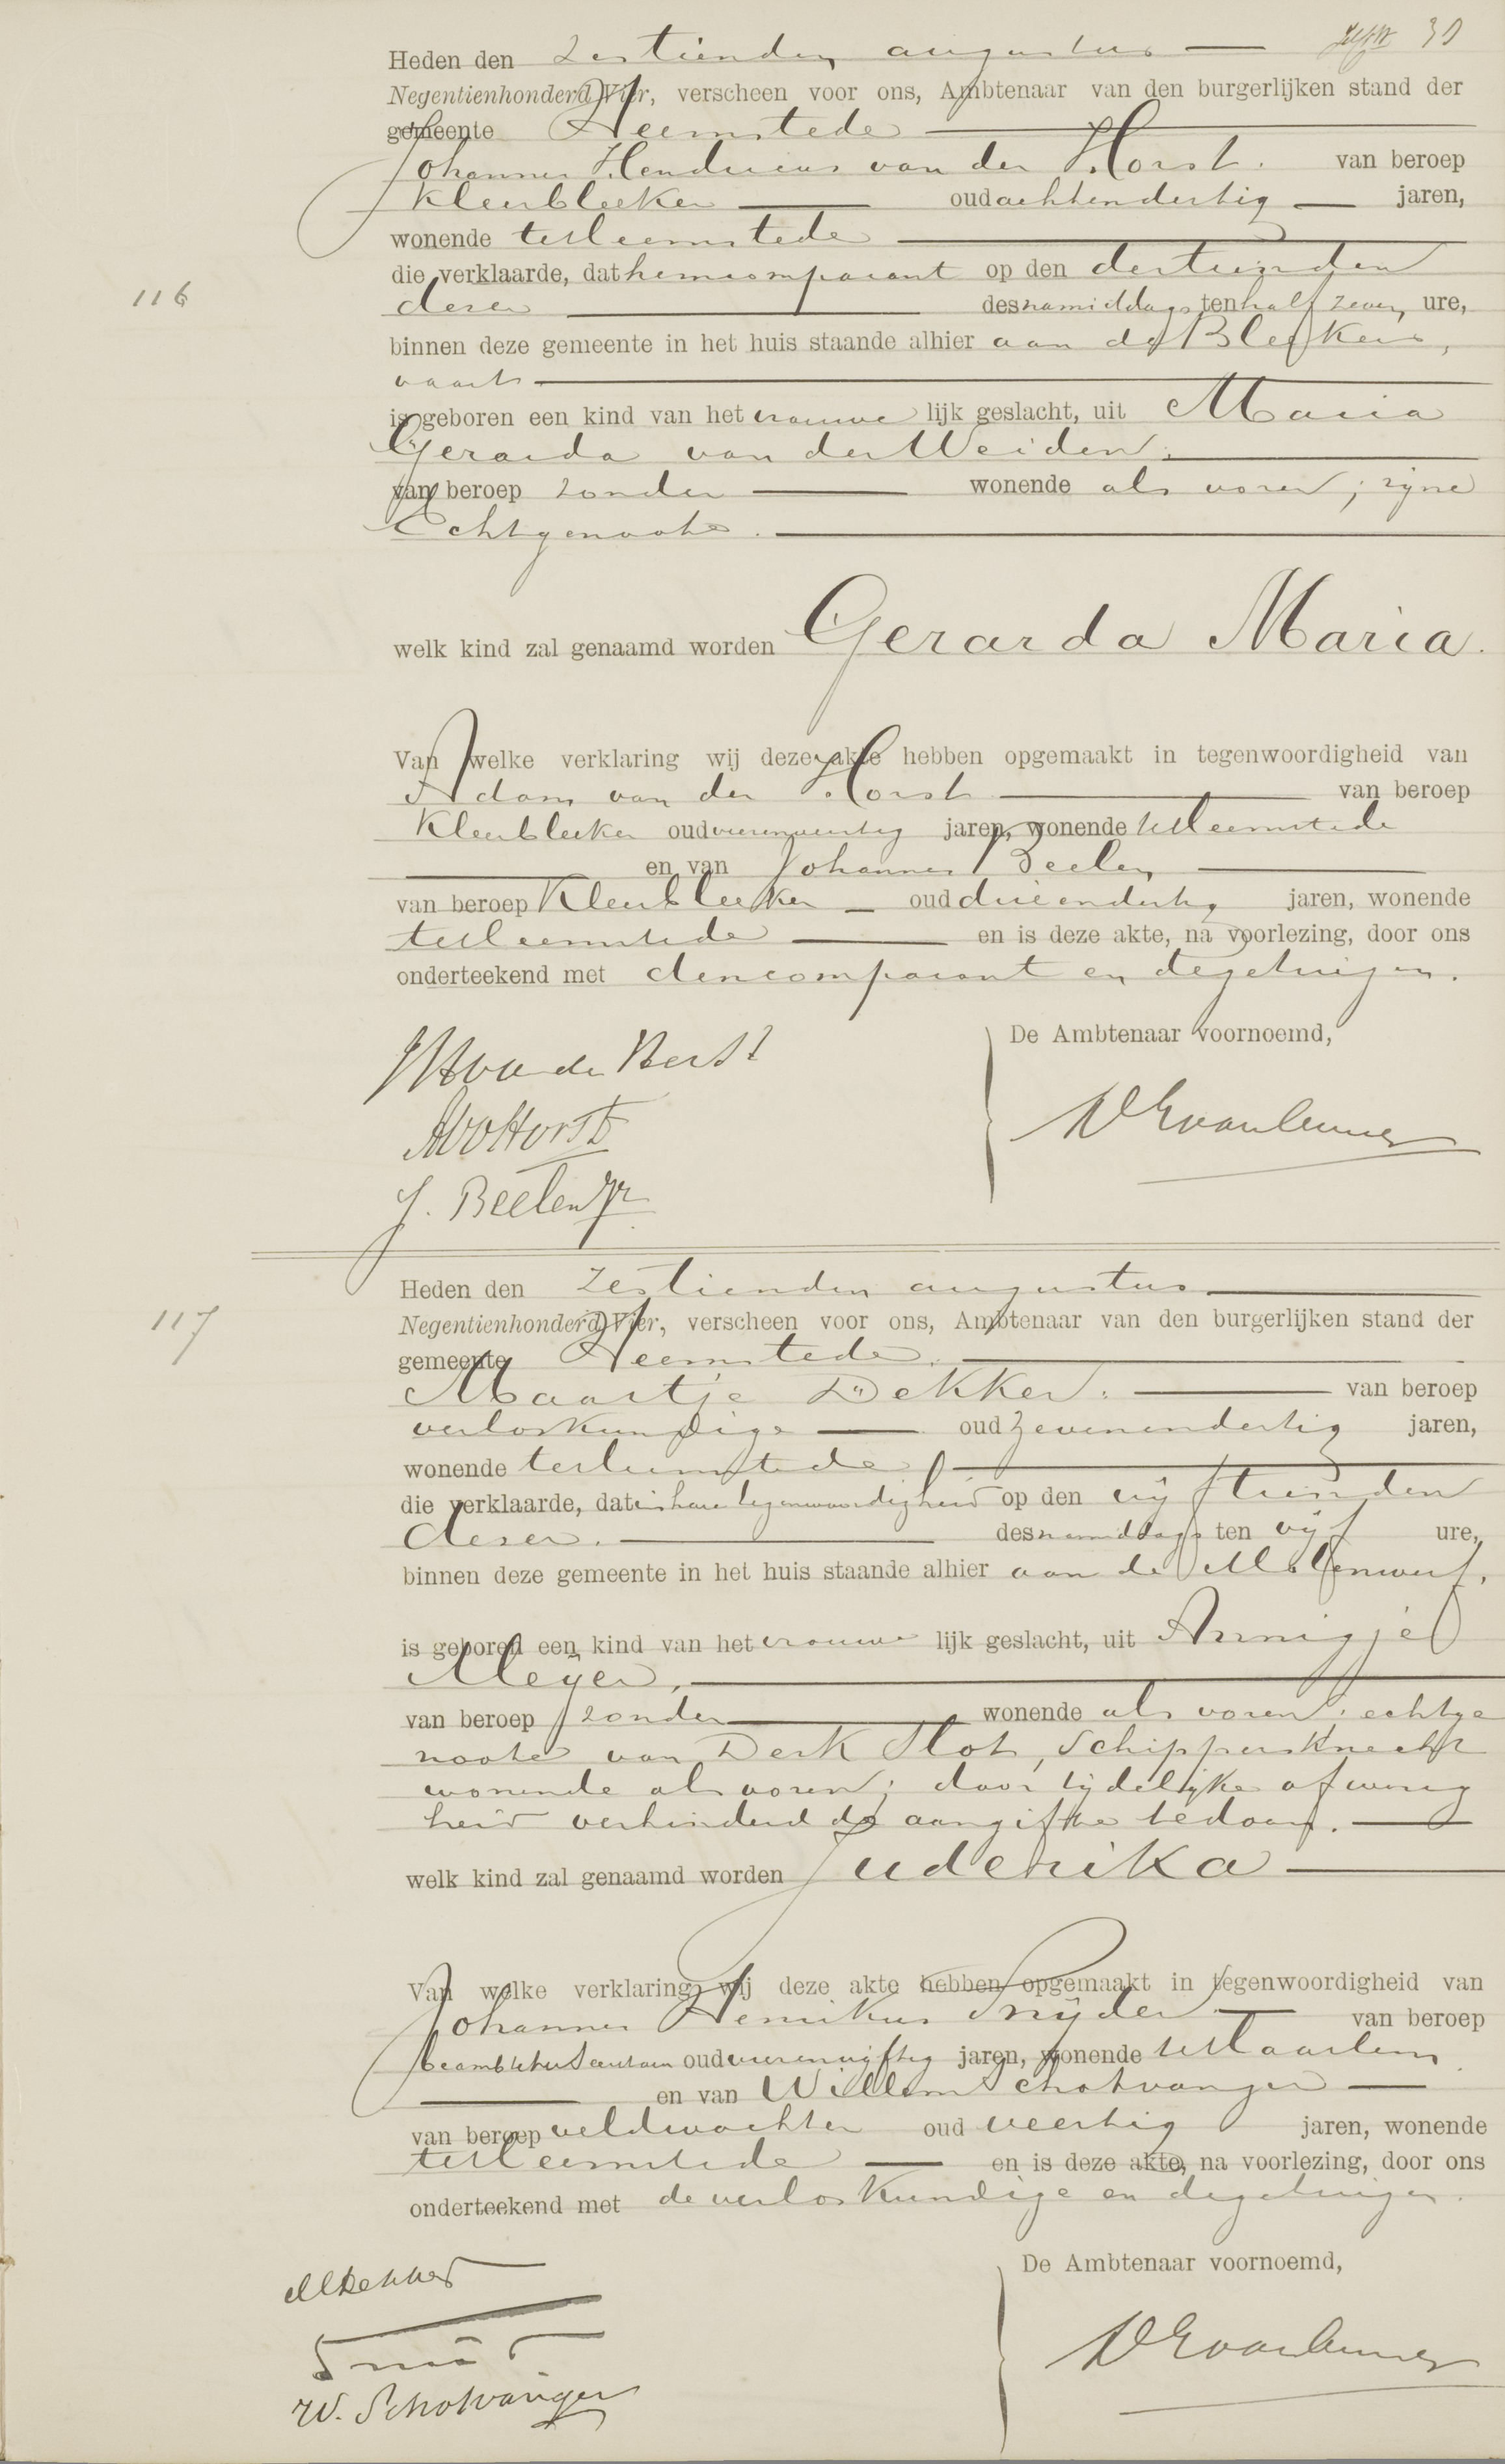 30
Heden den zestienden augustus
Negentienhonderd Vier, verscheen voor ons, Ambtenaar van den burgerlijken stand der
gemeente Heemstede
Johannes Hendricus van der Horst. van beroep
Kleerbleeker oud achtendertig jaren,
wonende te Heemstede
die verklaarde, dat hem comparant op den dertienden
116
dezer des namiddags ten half zeven ure,
binnen deze gemeente in het huis staande alhier aan de Bleekers,
vaart
is geboren een kind van het vrouwe lijk geslacht, uit Maria
Gerarda van der Weiden,
van beroep zonder wonende als voren, zijne
Echtgenoote.
welk kind zal genaamd worden Gerarda Maria.
Van welke verklaring wij deze akte hebben opgemaakt in tegenwoordigheid van
Adam van der Horst van beroep
Kleerbleeker oud jaren, wonende te Heemstede
en van Johannes Beelen
van beroep Kleerbleeker oud drieendertig jaren, wonende
te Heemstede en is deze akte, na voorlezing, door ons
onderteekend met den comparant en de getuigen.
De Ambtenaar voornoemd,
JH van der Horst
AvdHorst
J. Beelen Jr
Heden den zestienden augustus
117
Negentienhonderd Vier, verscheen voor ons, Ambtenaar van den burgerlijken stand der
gemeente Heemstede.
Maartje Dekker. van beroep
verloskundige oud zevenendertig jaren,
wonende te Heemstede
die verklaarde, dat in hare tegenwoordigheid op den vijftienden
dezer. des namiddags ten vijf ure,
binnen deze gemeente in het huis staande alhier aan de Molenwerf,
is geboren een kind van het vrouwe lijk geslacht, uit Annigje
Meijer,
van beroep zonder wonende als voren, echtge
noote van Derk Slot, Schippersknecht
wonende als voren; door tijdelijke afwezig
heid verhinderd de aangifte te doen.
welk kind zal genaamd worden Juderika
Van welke verklaring wij deze akte hebben opgemaakt in tegenwoordigheid van
Johannes Henrikus Snijder van beroep
beambte ter Secretarie oud vierenvijftig jaren, wonende te Haarlem
en van Willem Schotvanger
van beroep veldwachter oud veertig jaren, wonende
te Heemstede en is deze akte, na voorlezing, door ons
onderteekend met de verloskundige en de getuigen.
De Ambtenaar voornoemd,
MDekker
W. Schotvanger